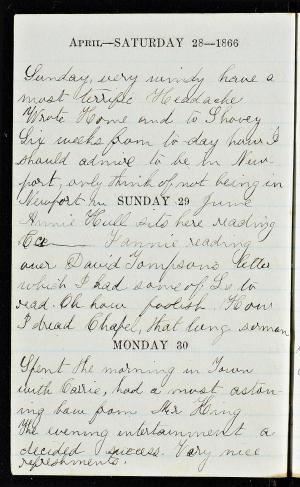 APRIL—SATURDAY 28—1866
Sunday, very windy have a
most terrific Headache
Wrote Home and to Shovey
Six weeks from to-day how I
should admire to be in New-
port, only think of not being in
Newport in June
SUNDAY 29
Annie Hull sits here reading
Fannie reading
over David Tompsons letter
which I had some of Ls to
read. Oh how foolish. How
I dread Chapel, that long sermon
MONDAY 30
Spent the morning in Town
with Carrie, had a most aston-
ing bow from Mr King
The evening intertainment a
decided success. Very nice
refreshments.